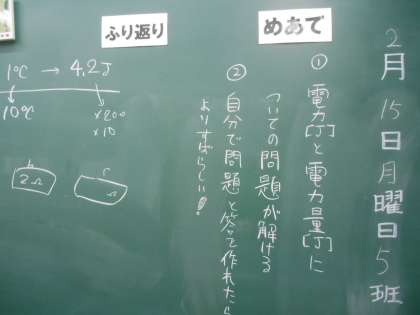 2月15日月曜日5班
めあて
① 電力[J]と電力量[J]に
ついての問題が解ける
② 自分で問題と答えを作れたら
よりすばらしい!
ふり返り
1℃ → 4.2J
10℃
×200
×10
2Ω
Ω